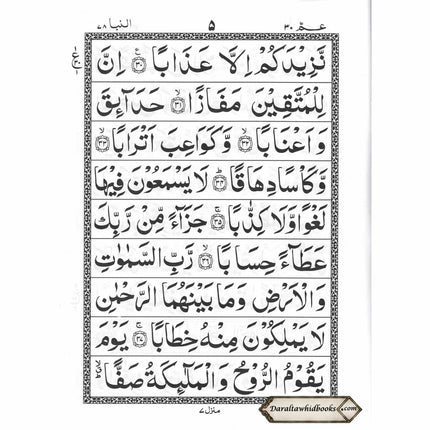 عـمّ ٣٠ ٥ النبا ٧٨
نَّزِيْدَكُمْ اِلَّا عَذَابًا ﴿٣٠﴾ اِنَّ
لِلْمُتَّقِيْنَ مَفَازًا ﴿٣١﴾ حَدَآئِقَ
وَاَعْنَابًا ﴿٣٢﴾ وَّكَوَاعِبَ اَتْرَابًا ﴿٣٣﴾
وَّكَاْسًا دِهَاقًا ﴿٣٤﴾ لَا يَسْمَعُوْنَ فِيْهَا
لَغْوًا وَّلَا كِذّٰبًا ﴿٣٥﴾ جَزَآءً مِّنْ رَّبِّكَ
عَطَآءً حِسَابًا ﴿٣٦﴾ رَّبِّ السَّمٰوٰتِ
وَالْاَرْضِ وَمَا بَيْنَهُمَا الرَّحْمٰنِ
لَا يَمْلِكُوْنَ مِنْهُ خِطَابًا ﴿٣٧﴾ يَوْمَ
يَقُوْمُ الرُّوْحُ وَالْمَلٰٓئِكَةُ صَفًّا
منزل ٧
Daraltawhidbooks.com